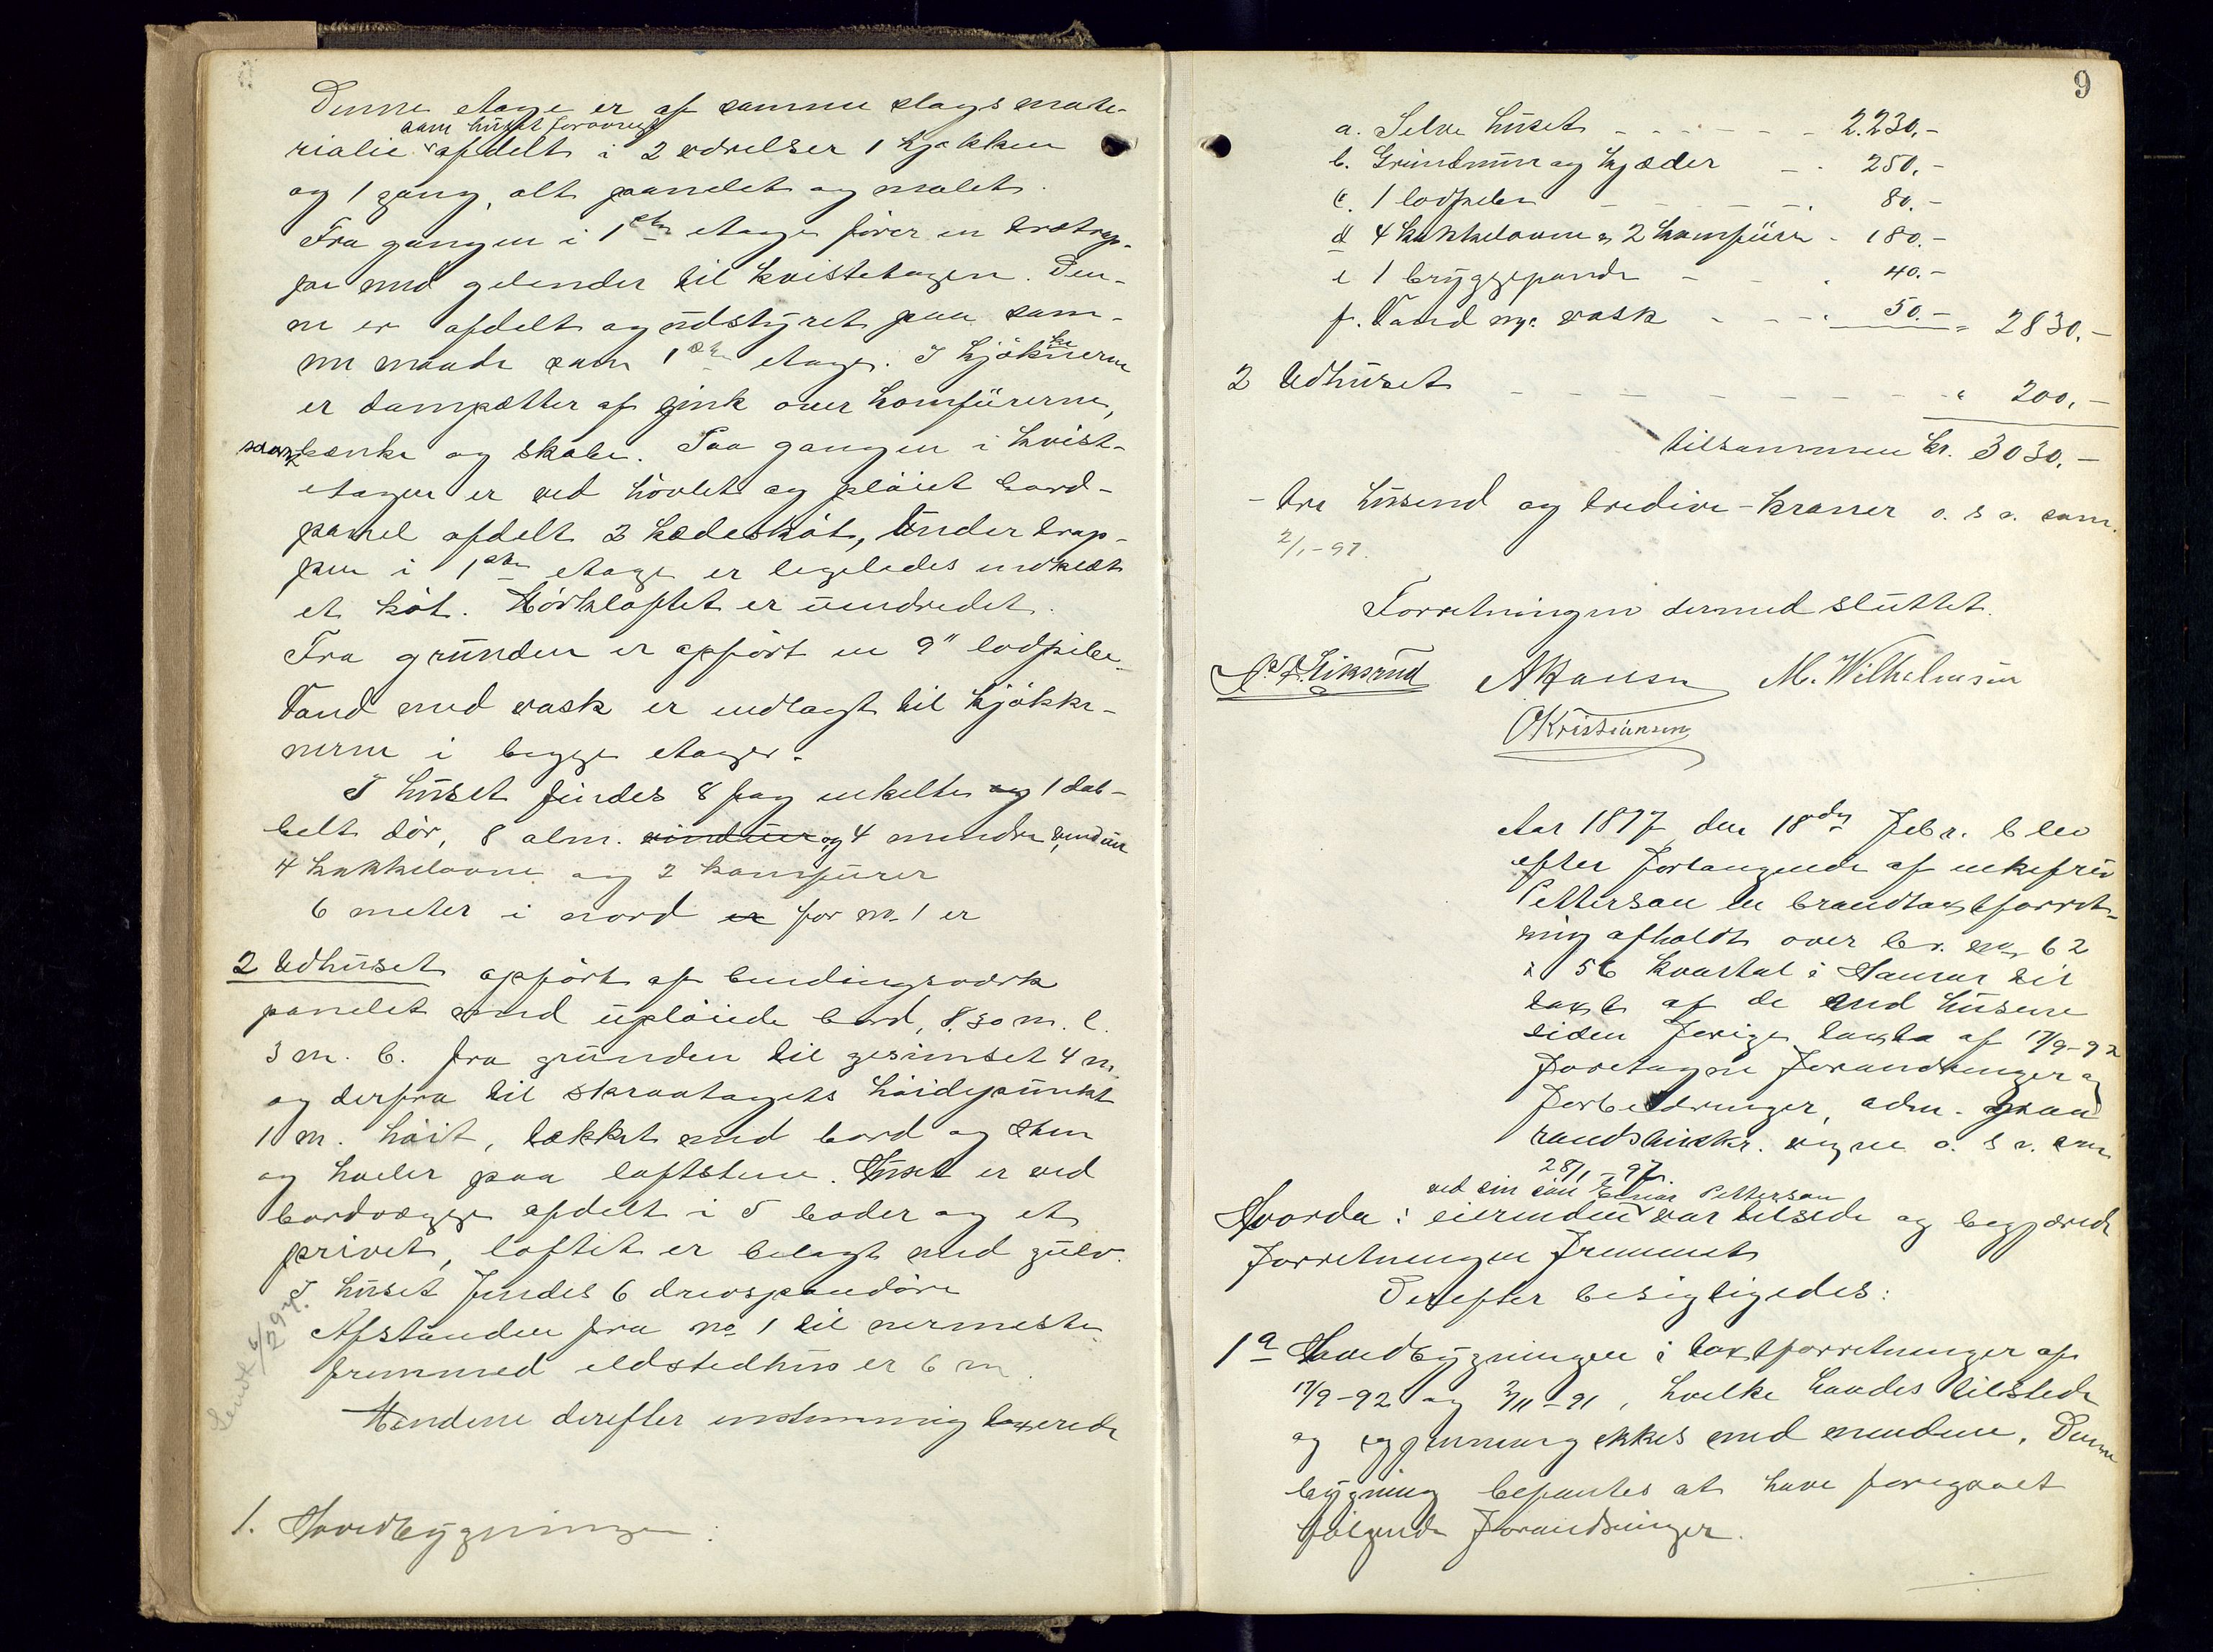 Denne etage er af samme slags mate-
som huset forøvrigt
rialie afdelt i 2 værelser 1 kjøkken
og 1 gang, alt panelet og malet.
Fra gangen i 1ste etage fører en trætrap-
pe med gelender til kvistetagen. Den-
ne er afdelt og udstyret paa sam-
me maade som 1ste etage. I kjøkkenerne
er dampætter af zink over komfürerne,
bænke og skabe. Paa gangen i kvist-
etagen er ved høvlet og pløiet bord-
panel afdelt 2 klædeskot, Under trap-
pen i 1ste etage er ligeledes indklædt
et kot. Mørkloftet er uindredet.
Fra grunden er opført en 9" lodpibe.
Vand med vask er indlagt til kjøkke-
nerne i begge etager.
I huset findes 8 fag enkelte og 1 dob-
belt dör, 8 alm. vinduer og 4 mindre vinduer
4 kakkelovne og 2 komfürer
6 meter i nord er for no. 1 er
2 Udhuset opført af bindingsværk
panelet med upløiede bord, 8.30 m. l.
3 m. b. fra grunden til gesimset 4 m.
og derfra til skraatagets høidepunkt
1 m. höit, tækket med bord og sten
og hviler paa loftstene. Huset er ved
bordvægge afdelt i 5 boder og et
privet, loftet er belagt med gulv.
I huset findes 6 døre
Afstanden fra no 1 til nærmeste
fremmed ildstedhus er 6 m.
Sendt 6/2 97.
Mændene derefter enstemmig taxerede
1. Hovedbygningen:
9
a. Selve huset - - - - - 2.230,-
b. Grundmur og kjælder - - 250,-
c. 1 lodpibe - - - - - 80.-
d 4 kakkelovne og 2 komfürer - 180.-
e 1 bryggepande - - 40.-
f. Vand og vask - - - 50.- = 2830.-
2 Udhuset - - - - - - - - " 200.-
tilsammen kr. 3030.-
- tre tusend og tredive - kroner o. s. v. som
2/1-97.
Forretningen dermed sluttet.
A Hansen M. Wilhelmsen
O Kristiansen
Aar 1897 den 18de Febr. blev
efter Forlangende af enkefru
Petterson en brandtaxtforret-
ning afholdt over br. no. 62
i 56 kvartal i Hamar til
taxt af de med husene
siden forige taxt af 17/9-92
foretagne Forandringer og
Forbedringer, adm.
o. s. v. som
28/1-97.
ved sin sön Einar Petterson
Hvorda: eierinden var tilstede og begjærede
Forretningen fremmet
Derefter besigtigedes:
1a Hovedbygningen i taxtforretninger af
17/9-92 og 2/11-91, hvilke havdes tilstede
og gjennemgikkes med mændene. Denne
bygning befantes at have foregaaet
følgende Forandringer.